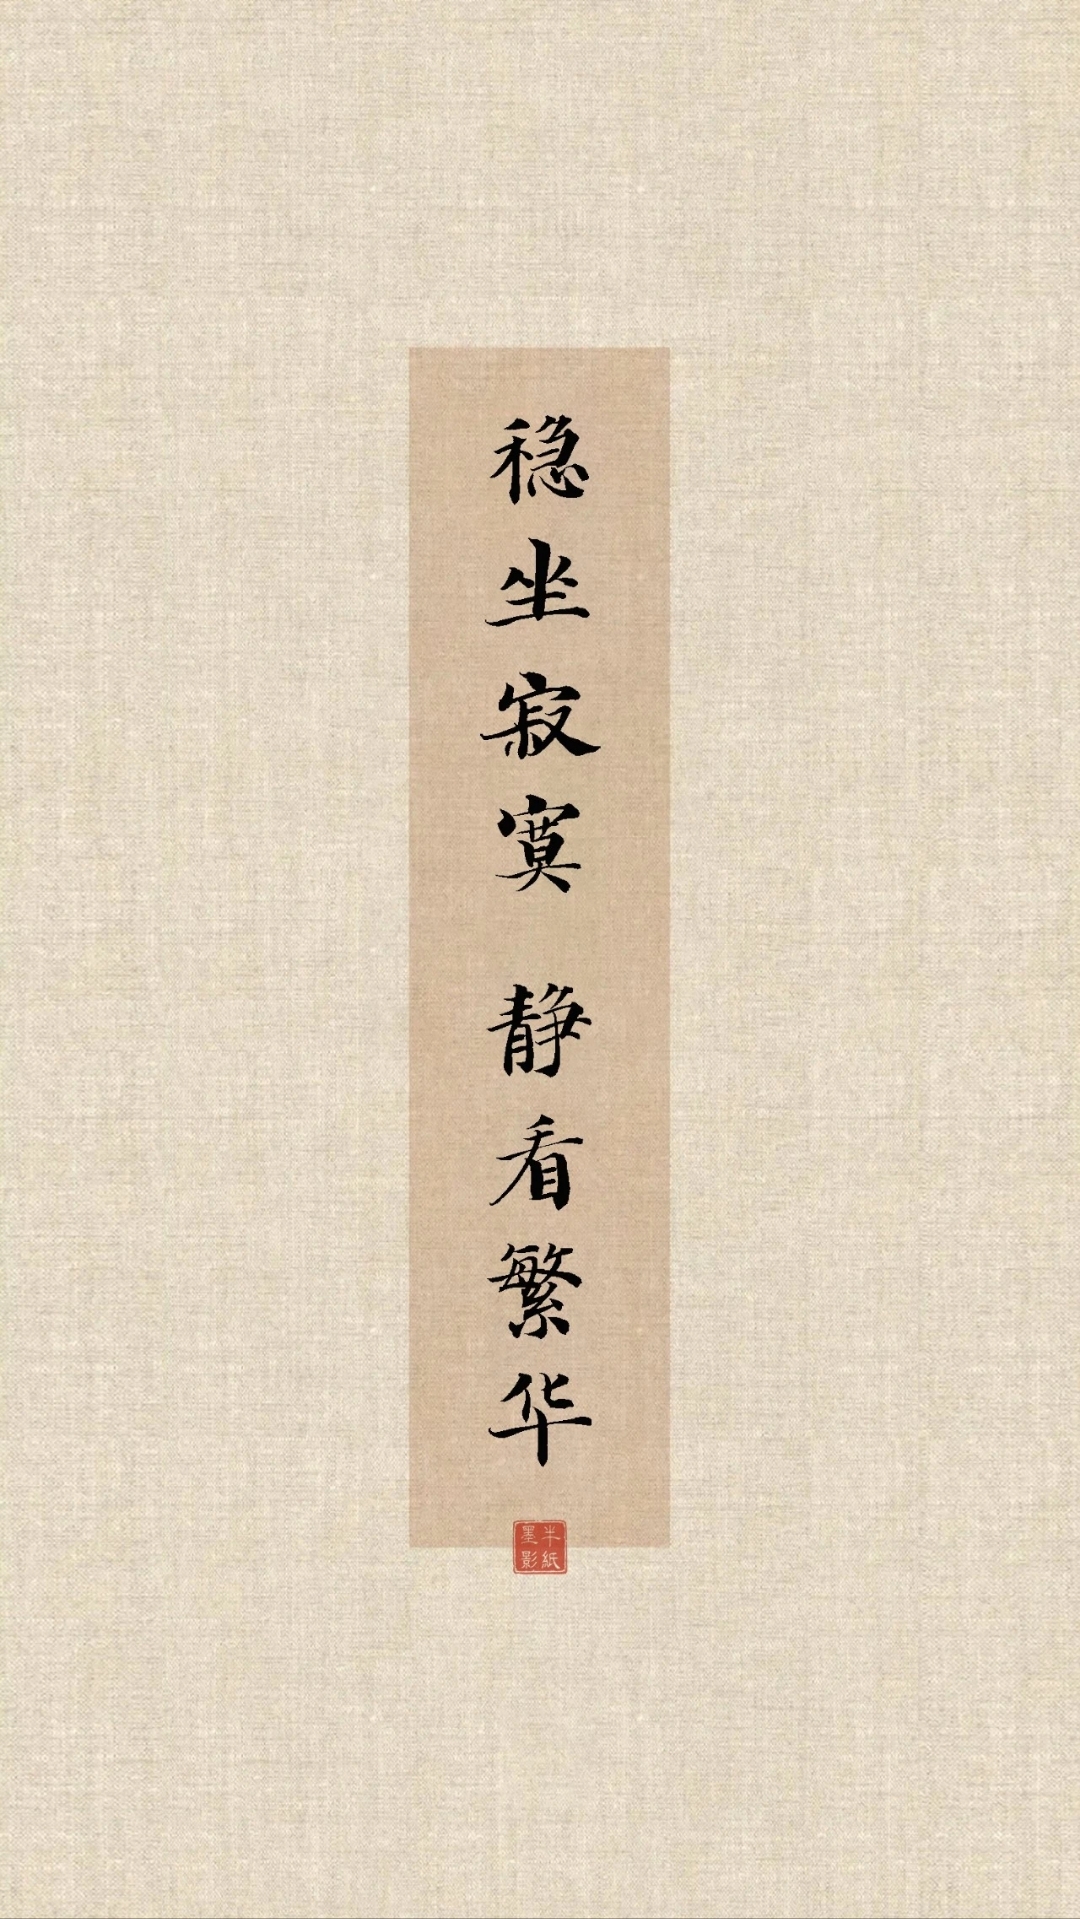 稳坐寂寞 静看繁华
半纸
墨影